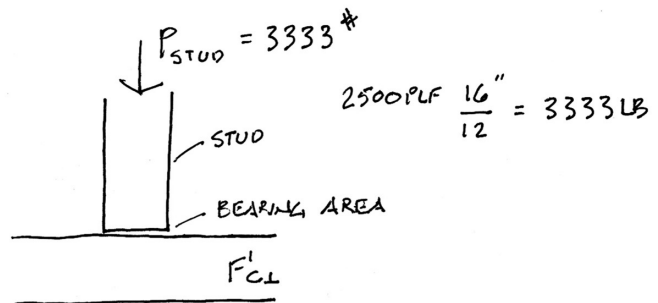 P STUD = 3333 #
2500 PLF 16" / 12 = 3333 LB
STUD
BEARING AREA
F'c⊥